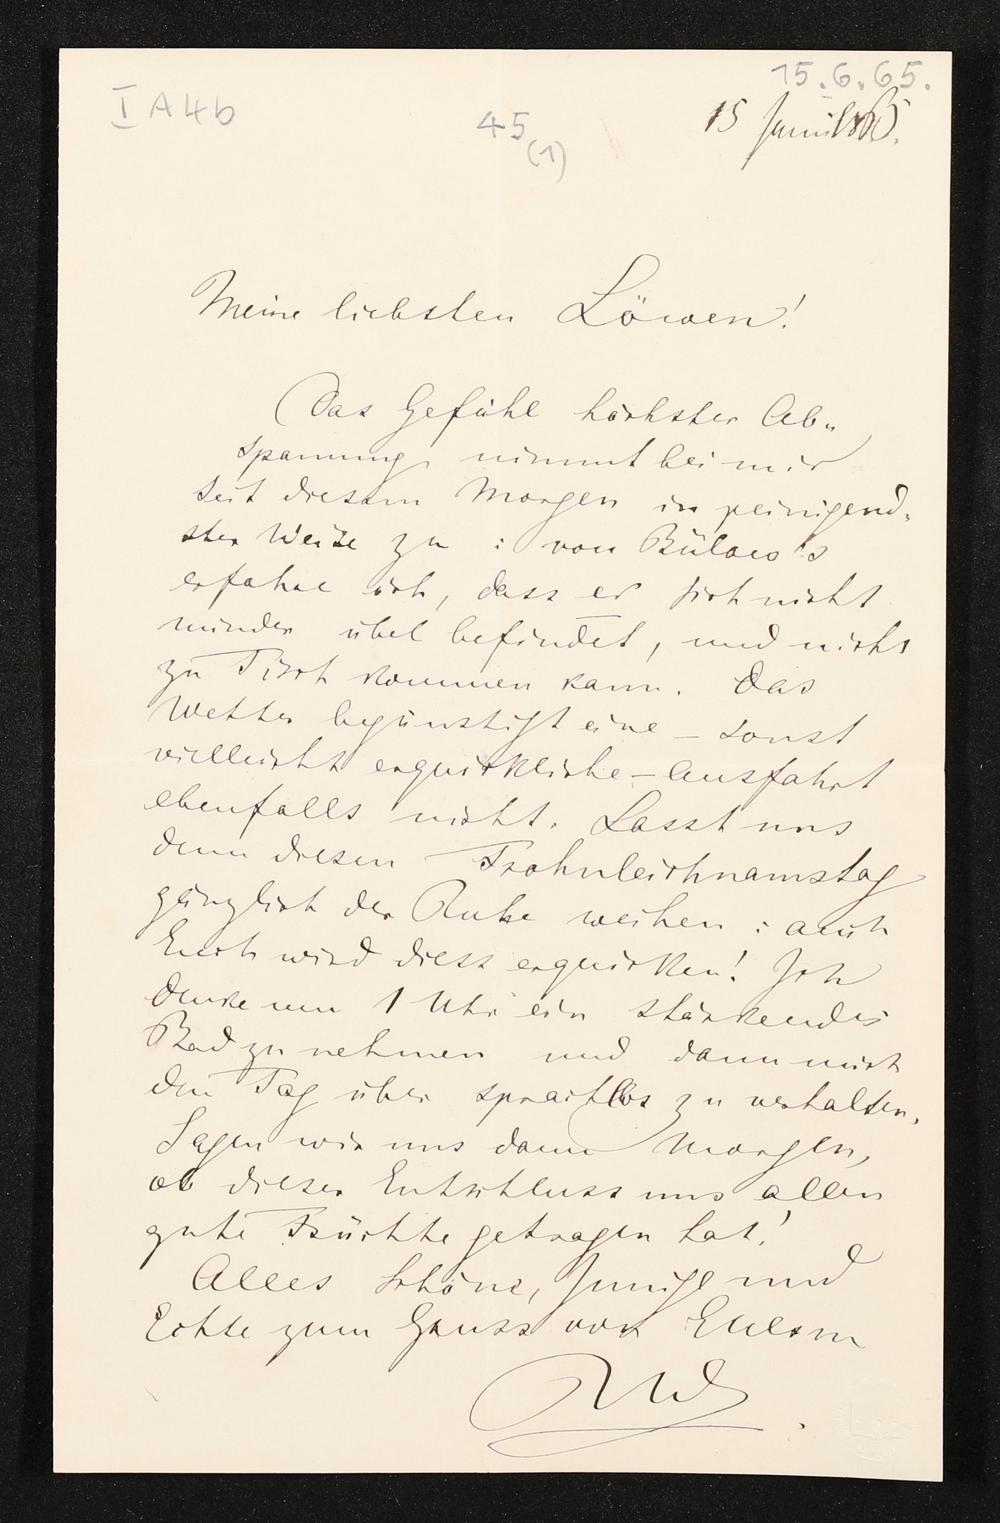 I A 4 b
45
(1)
15.6.65.
15 Juni 1865.
Meine liebsten Löwen!
Das Gefühl höchster Ab-
spannung nimmt bei mir
seit diesem Morgen in peinigend-
ster Weise zu : von Bülow's
erfahre ich, dass er sich nicht
minder übel befindet, und nicht
zu Tisch kommen kann. Das
Wetter begünstigt eine – sonst
vielleicht erquickliche – Ausfahrt
ebenfalls nicht. Lasst uns
denn diesen Frohnleichnamstag
gänzlich der Ruhe weihen : auch
Euch wird diess erquicken! Ich
denke um 1 Uhr ein stärkendes
Bad zu nehmen und dann mich
den Tag über sprachlos zu verhalten.
Sagen wir uns dann Morgen,
ob dieser Entschluss uns allen
gute Früchte getragen hat!
Alles Schöne, Innige und
Echte zum Gruss von Eurem
RW